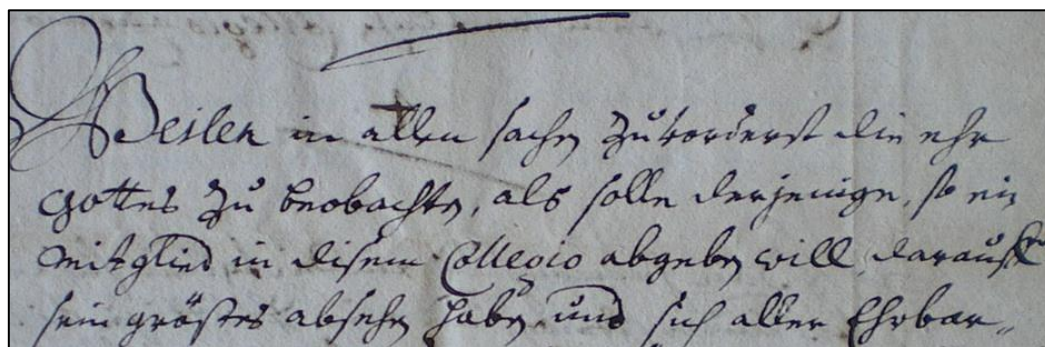 Weilen in allen sachen zuvorderst die ehr
gottes zu beobachten, als solle derjenige, so ein
mitglied in disem Collegio abgeben will, darauf
sein gröstes absehen haben, und sich aller Ehrbar„